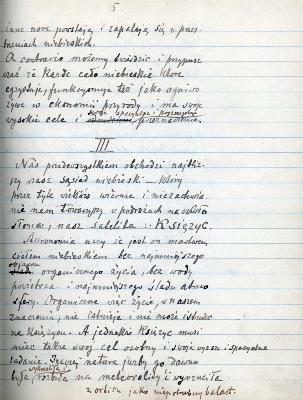 5
inne nowe powstają i zapalają się w przes-
tworzach niebieskich.
A contrario możemy twierdzić i przypusz-
czać że każde ciało niebieskie które
egzystuje, funkcyonuje też jako ogniwo
żywe w ekonomii przyrody i ma swoje
swoje specyalne i
wysokie cele i przeznaczenie.
III
Nas przedewszystkiem obchodzi najbliż-
szy nasz sąsiad niebieski — który
przez tyle wieków wiernie i niezachwia-
nie nam towarzyszy w podróżach na około
słońca, nasz satelita : Księżyc.
Astronomia uczy że jest on martwem
ciałem niebieskiem bez najmniejszego
organicznego życia, bez wody
powietrza i najmniejszego śladu atmo-
sfery. Organiczne więc życie, w naszem
znaczeniu, nie istnieje i nie może istnieć
na Księżycu. A jednakże Księżyc musi
mieć także swój cel osobny i swoje wyższe i specyalne
zadanie. Inaczej natura jużby go dawno
była rozbiła na meteoroidy i wyrzuciła
z orbitu jako niepotrzebny balast.